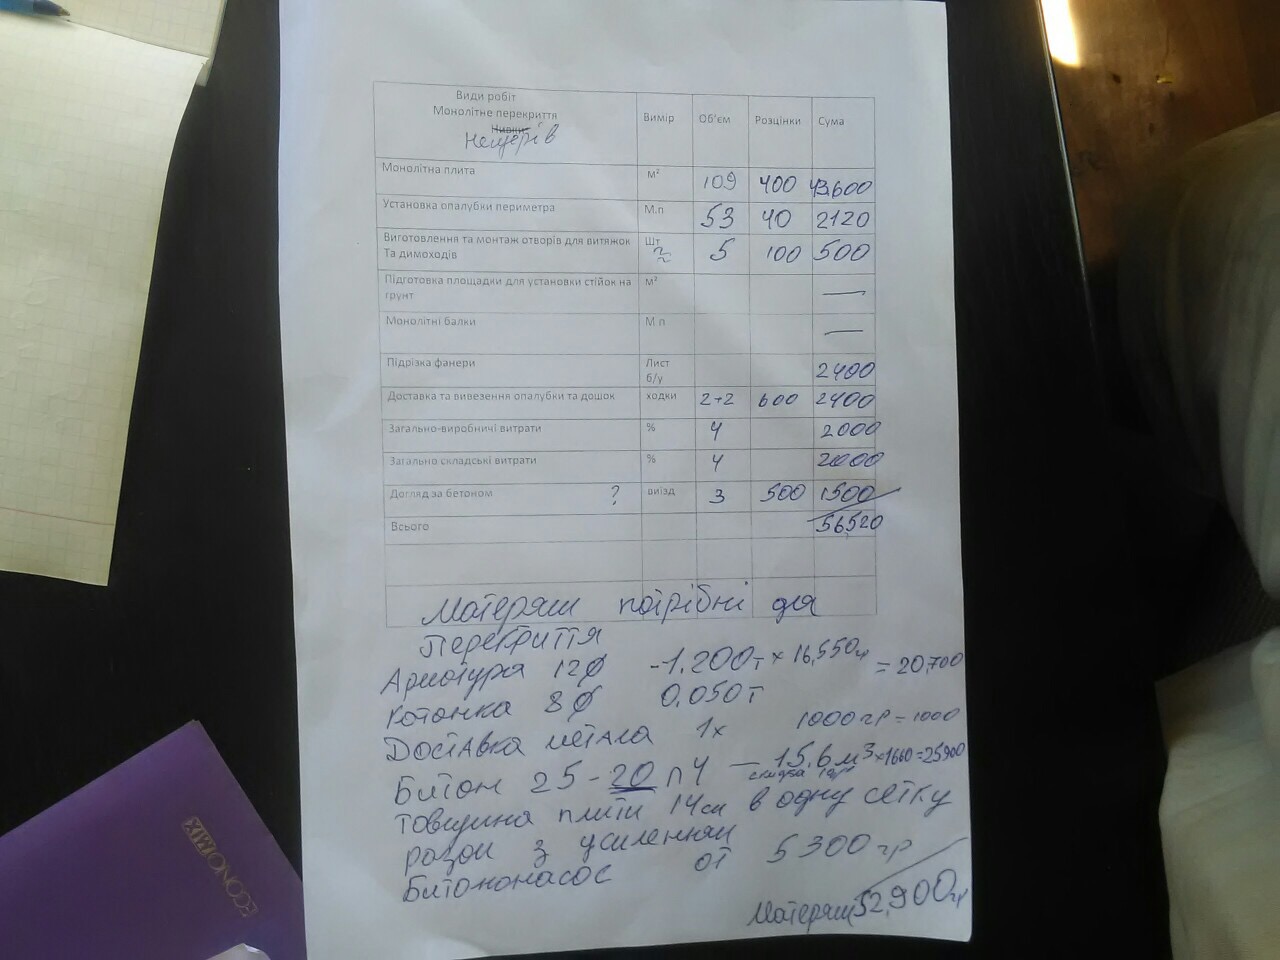 Види робіт
Монолітне перекриття
Нещерів
Вимір Об'єм Розцінки Сума
Монолітна плита м² 109 400 43,600
Установка опалубки периметра М.п 53 40 2120
Виготовлення та монтаж отворів для витяжок Шт 5 100 500
Та димоходів
Підготовка площадки для установки стійок на м² —
грунт
Монолітні балки М п —
Підрізка фанери Лист 2400
б/у
Доставка та вивезення опалубки та дошок ходки 2+2 600 2400
Загально-виробничі витрати % 4 2000
Загально складські витрати % 4 2000
Догляд за бетоном ? виїзд 3 500 1500
Всього 56520
Матеряли потрібні для
перекриття
Арматура 12∅ -1.200т × 16,550гр = 20,700
Котонка 8∅ 0.050т
Доставка метала 1х 1000гр = 1000
Битон 25-20 п4 — 15.6м³×1660=25900
товщина плити 14см в одну сетку
разом з усиленням
Битононасос от 5300гр
Матеряли 52,900гр
ECONOMIX